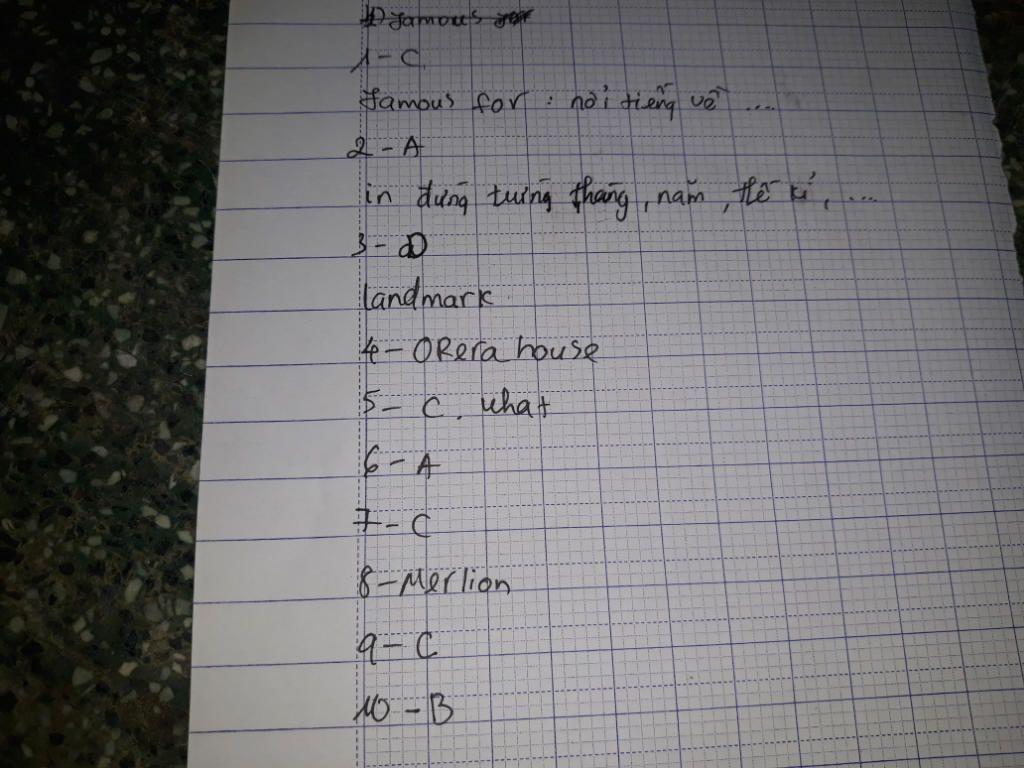 famous
1-C
famous for : nổi tiếng về ....
2-A
in đứng trước tháng, năm, thế kỉ, ...
3-D
landmark
4-Opera house
5-C. what
6-A
7-C
8-Merlion
9-C
10-B